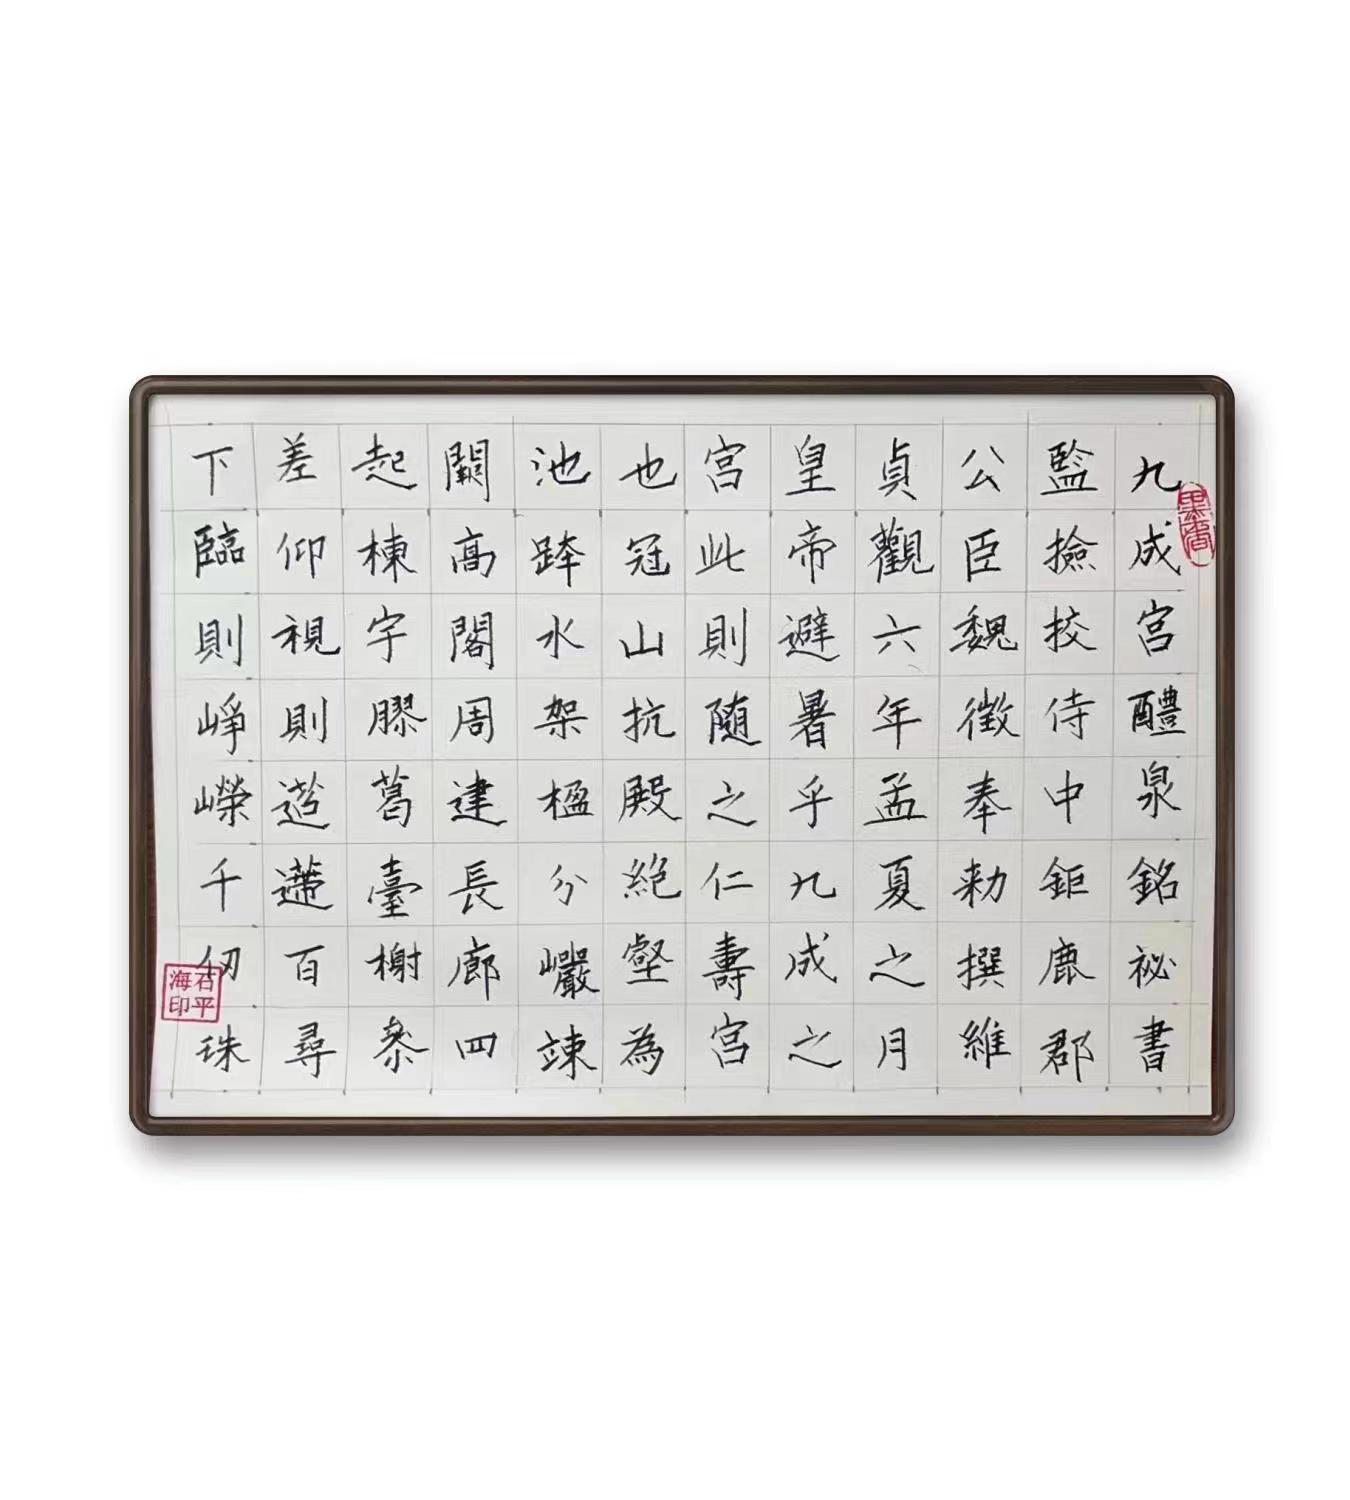 九成宫醴泉銘祕書
監撿挍侍中鉅鹿郡
公臣魏徵奉勅撰維
貞觀六年孟夏之月
皇帝避暑乎九成之
宫此則随之仁壽宫
也冠山抗殿絕壑為
池跨水架楹分巖竦
闕高閣周建長廊四
起棟宇膠葛臺榭叅
差仰視則迢遰百尋
下臨則崢嶸千仞珠
墨香
石平海印